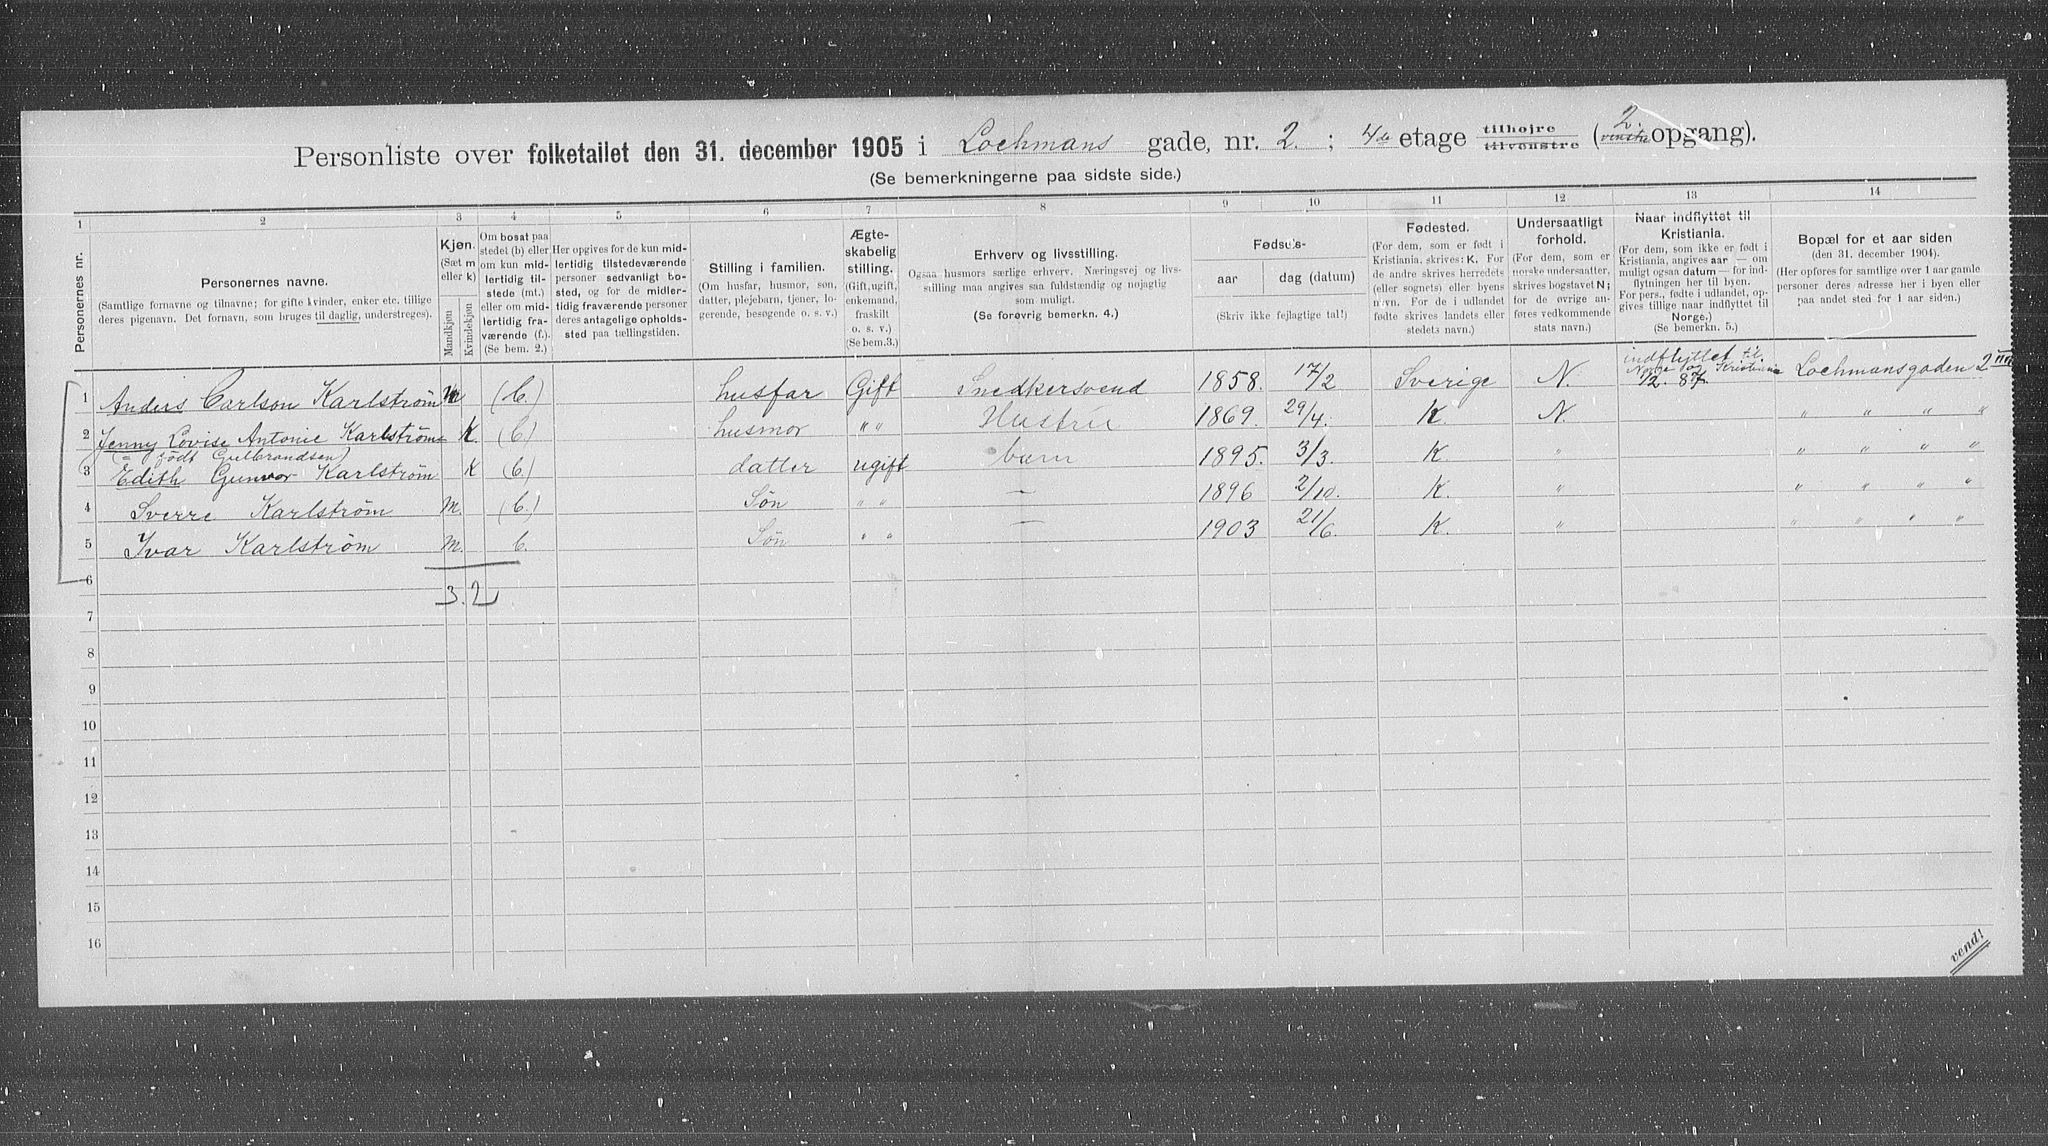 Personliste over folketallet den 31. december 1905 i Lochmans gade, nr. 2. ; 4de etage tilhøjre tilvenstre (2. venstre opgang).
(Se bemerkningerne paa sidste side.)
1 2 3 4 5 6 7 8 9 10 11 12 13 14
Personernes nr.
Personernes navne.
(Samtlige fornavne og tilnavne; for gifte kvinder, enker etc. tillige
deres pigenavn. Det fornavn, som bruges til daglig, understreges).
Kjøn.
(Sæt m
eller k)
Mandkjøn
Kvindekjøn
Om bosat paa
stedet (b) eller
om kun mid-
lertidig til-
stede (mt.)
eller om mid-
lertidig fra-
værende (f.).
(Se bem. 2.)
Her opgives for de kun mid-
lertidig tilstedeværende
personer sedvanligt bo-
sted, og for de midler-
tidig fraværende personer
deres antagelige opholds-
sted paa tællingstiden.
Stilling i familien.
(Om husfar, husmor, søn,
datter, plejebarn, tjener, lo-
gerende, besøgende o. s. v.)
Ægte-
skabelig
stilling.
(Gift, ugift,
enkemand,
fraskilt
o. s. v.)
(Se bem. 3.)
Erhverv og livsstilling.
Ogsaa husmors særlige erhverv. Næringsvej og livs-
stilling maa angives saa fuldstændig og nøjagtig
som muligt.
(Se forøvrig bemerkn. 4.)
Fødsels-
aar dag (datum)
(Skriv ikke fejlagtige tal!)
Fødested.
(For dem, som er født i
Kristiania, skrives: K. For
de andre skrives herredets
(eller sognets) eller byens
navn. For de i udlandet
fødte skrives landets eller
stedets navn.)
Undersaatligt
forhold.
(For dem, som er
norske undersaatter,
skrives bogstavet N;
for de øvrige an-
føres vedkommende
stats navn.)
Naar indflyttet til
Kristiania.
(For dem, som ikke er født i
Kristiania, angives aar — om
muligt ogsaa datum — for ind-
flytningen her til byen.
For pers., fødte i udlandet, op-
gives tillige naar indflyttet til
Norge.)
(Se bemerkn. 5.)
Bopæl for et aar siden
(den 31. december 1904).
(Her opføres for samtlige over 1 aar gamle
personer deres adresse her i byen eller
paa andet sted for 1 aar siden.)
indflyttet til
Norge og Kristiania
1 Anders Carlson Karlstrøm m (b.) husfar Gift Snedkersvend 1858. 17/2 Sverige N. 1/2. 87. Lochmansgaden 2 IIII
2 Jenny Lovise Antonie Karlstrøm K. (b) husmor " " Hustru 1869. 29/4. K. N. " " " "
(= født Gulbrandsen)
3 Edith Gunvor Karlstrøm K (b.) datter ugift barn 1895. 3/3. K. " " " " "
4 Sverre Karlstrøm M. (b.) Søn " " — 1896 2/10. K. " " " " "
5 Ivar Karlstrøm M. b. Søn " " — 1903 21/6. K. " " " " "
6
3. 2
7
8
9
10
11
12
13
14
15
16
vend!